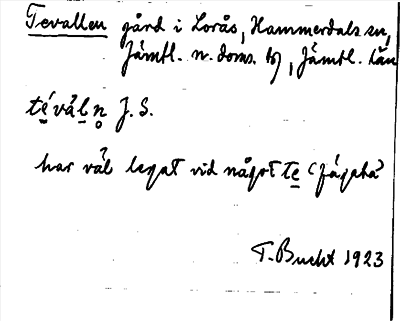 Tevallen gård i Lorås, Hammerdals sn,
Jämtl. n. doms. , Jämtl. län
tévåln J.S.
har väl legat vid något te
T. Bucht 1923